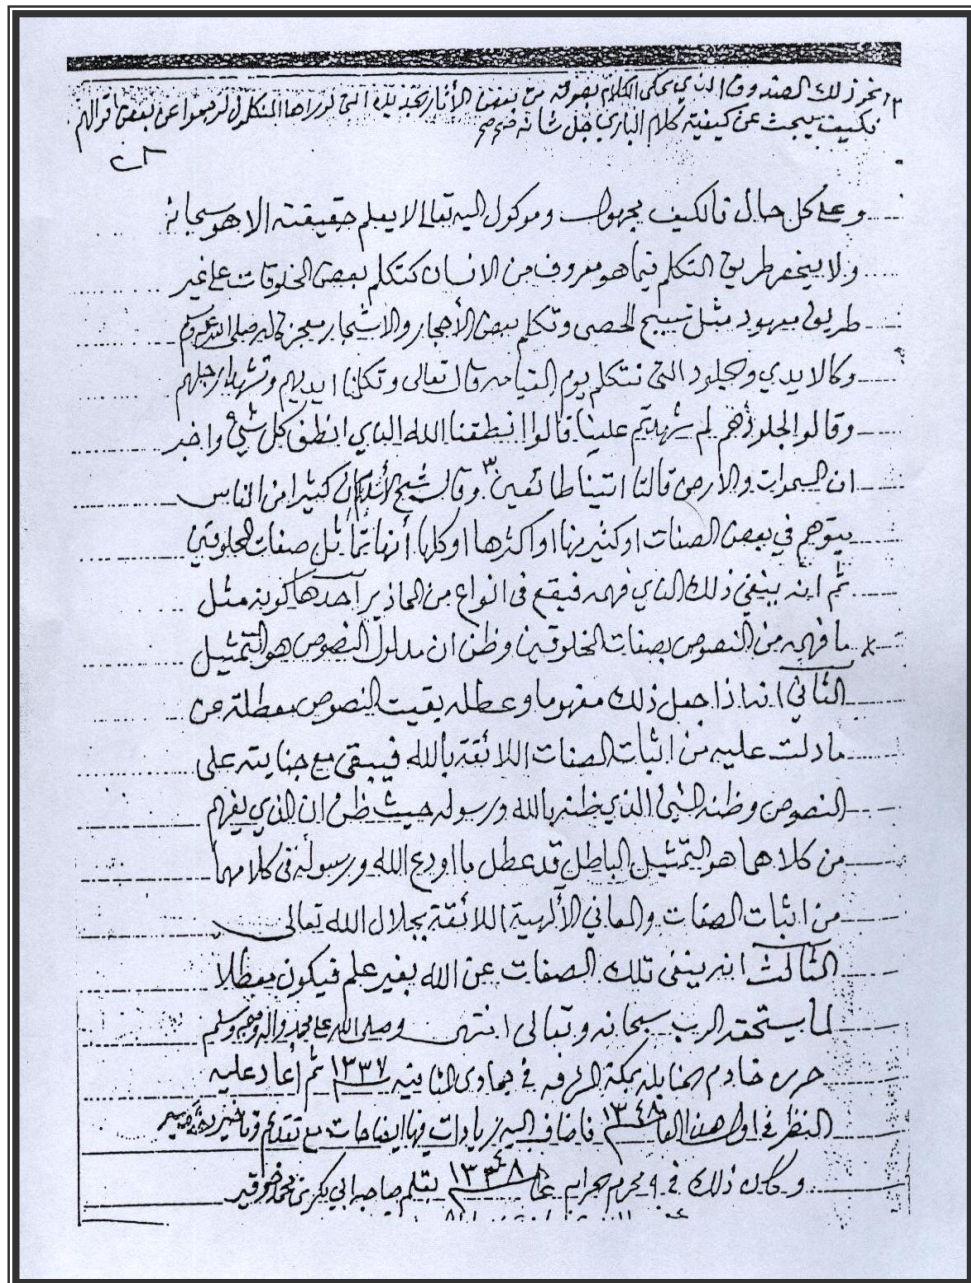 نحو ذلك الصندوق الذي يحكي الكلام بصوته من بعض الأثار الجديدة التي لو راها المتكلمون لرجعوا عن بعض اقوالهم
فكيف يبحث عن كيفية كلام الباري جل شانه صح صح
وعلى كل حال فالكيف مجهول وموكول اليه تعالى لا يعلم حقيقته الا هو سبحانه
ولا ينحصر طريق التكلم فيما هو معروف من الانسان كتكلم بعض المخلوقات على غير
طريق معهود مثل تسبيح الحصى وتكلم بعض الأحجار والاشجار معجزة له صلى الله عليه وسلم
وكالايدي والجلود التي تتكلم يوم القيامة قال تعالى وتكلمنا ايديهم وتشهد ارجلهم
وقالوا لجلودهم لم شهدتم علينا قالوا انطقنا الله الذي انطق كل شيئ واخبر
ان السموات والأرض قالتا اتينا طائعين ٣ وقال شيخ الأسلام ان كثيرا من الناس
يتوهم في بعض الصفات او كثير منها او اكثرها او كلها أنها تماثل صفات المخلوقين
ثم انه ينفي ذلك الذي فهمه فيقع في انواع من المحاذير أحدها كونه مثل
ما فهمه من النصوص بصفات المخلوقين وظن ان مدلول النصوص هو التمثيل
الثاني انه اذا جعل ذلك مفهوما وعطله بقيت النصوص معطلة عن
ما دلت عليه من اثبات الصفات اللائقة بالله فيبقى مع جنايته على
النصوص وظنه السيئ الذي ظنه بالله ورسوله حيث ظن ان الذي يفهم
من كلامهما هو التمثيل الباطل قد عطل ما اودع الله ورسوله في كلامهما
من اثبات الصفات والمعاني الألهية اللائقة بجلال الله تعالى
الثالث انه ينفي تلك الصفات عن الله بغير علم فيكون معطلا
لما يستحقه الرب سبحانه وتعالى انتهى وصلى الله على محمد واله وصحبه وسلم
حرره خادم الحنابله بمكة المشرفه في جمادى الثانيه ١٣٣٧ ثم أعاد عليه
النظر في اول هذا العام ١٣٤٨ فاضاف اليه زيادات فيها ايضاحات مع تقديم وتاخير
وكان ذلك في ٩ محرم الحرام عام بقلم صاحبه ابي بكر بن محمد خوقير